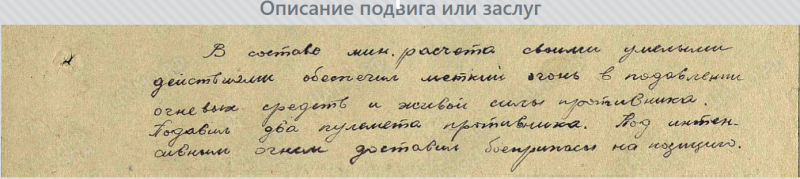 Описание подвига или заслуг
В составе мин. расчета своими умелыми
действиями обеспечил меткий огонь в подавлении
огневых средств и живой силы противника.
Подавил два пулемета противника. Под интен-
сивным огнем доставил боеприпасы на позицию.